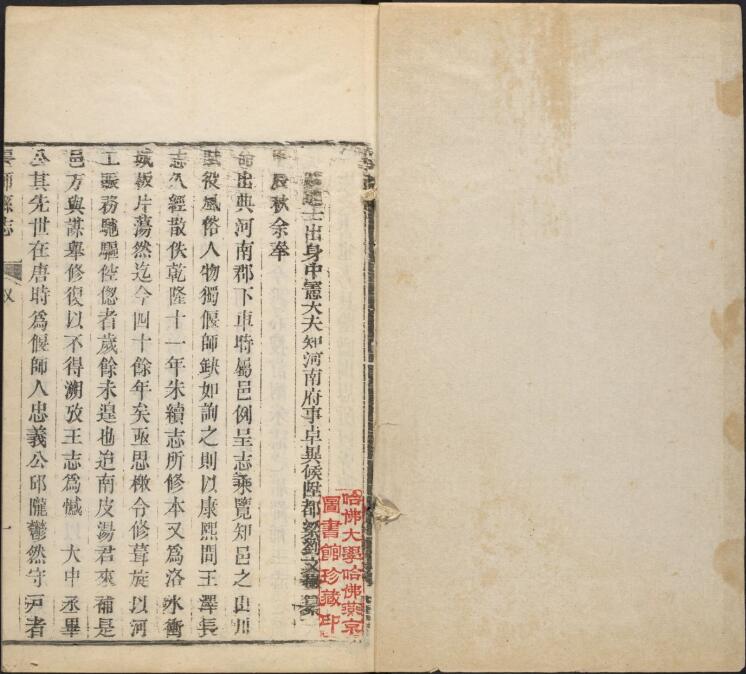 進士出身中憲大夫知河南府事卓異候陞都梁劉文徽纂
甲辰秋余奉
命出典河南郡下車時屬邑例呈志乘覽知邑之山川
賦役風俗人物獨偃師缺如詢之則以康熙間王澤長
志久經散佚乾隆十一年朱續志所修本又為洛水衝
城板片蕩然迄今四十餘年矣亟思檄令修葺旋以河
工賑務馳驅倥偬者歲餘未遑也迨南皮湯君來補是
邑方與謀舉修復以不得溯攷王志為憾 大中丞畢
公其先世在唐時為偃師人忠義公邱隴鬱然守戸者
偃師縣志
一
哈佛大學哈佛燕京
圖書館珍藏印